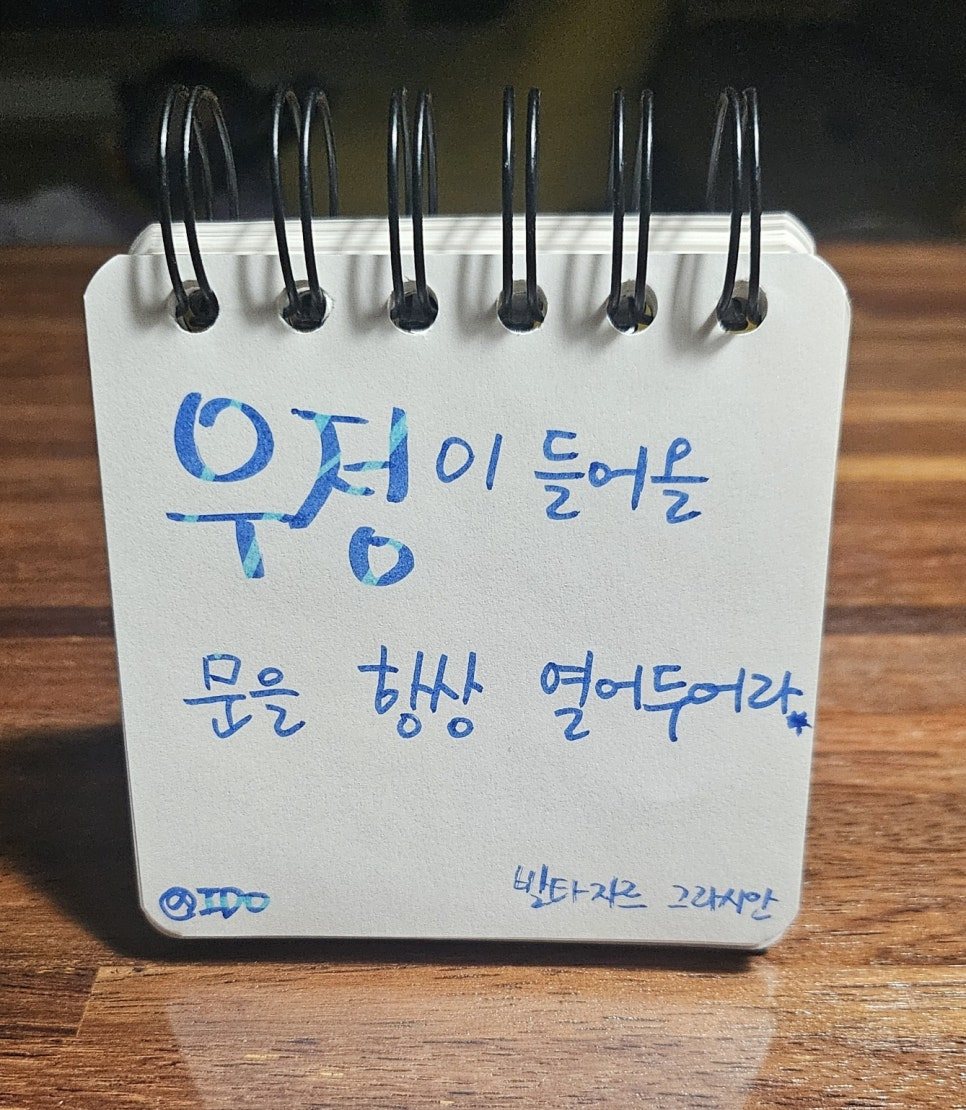 우정이 들어올
문을 항상 열어두어라.
@IDO
발타자르 그라시안